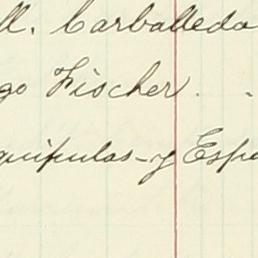 ll. Carballeda
go Fischer. -
quipulas-y Espa